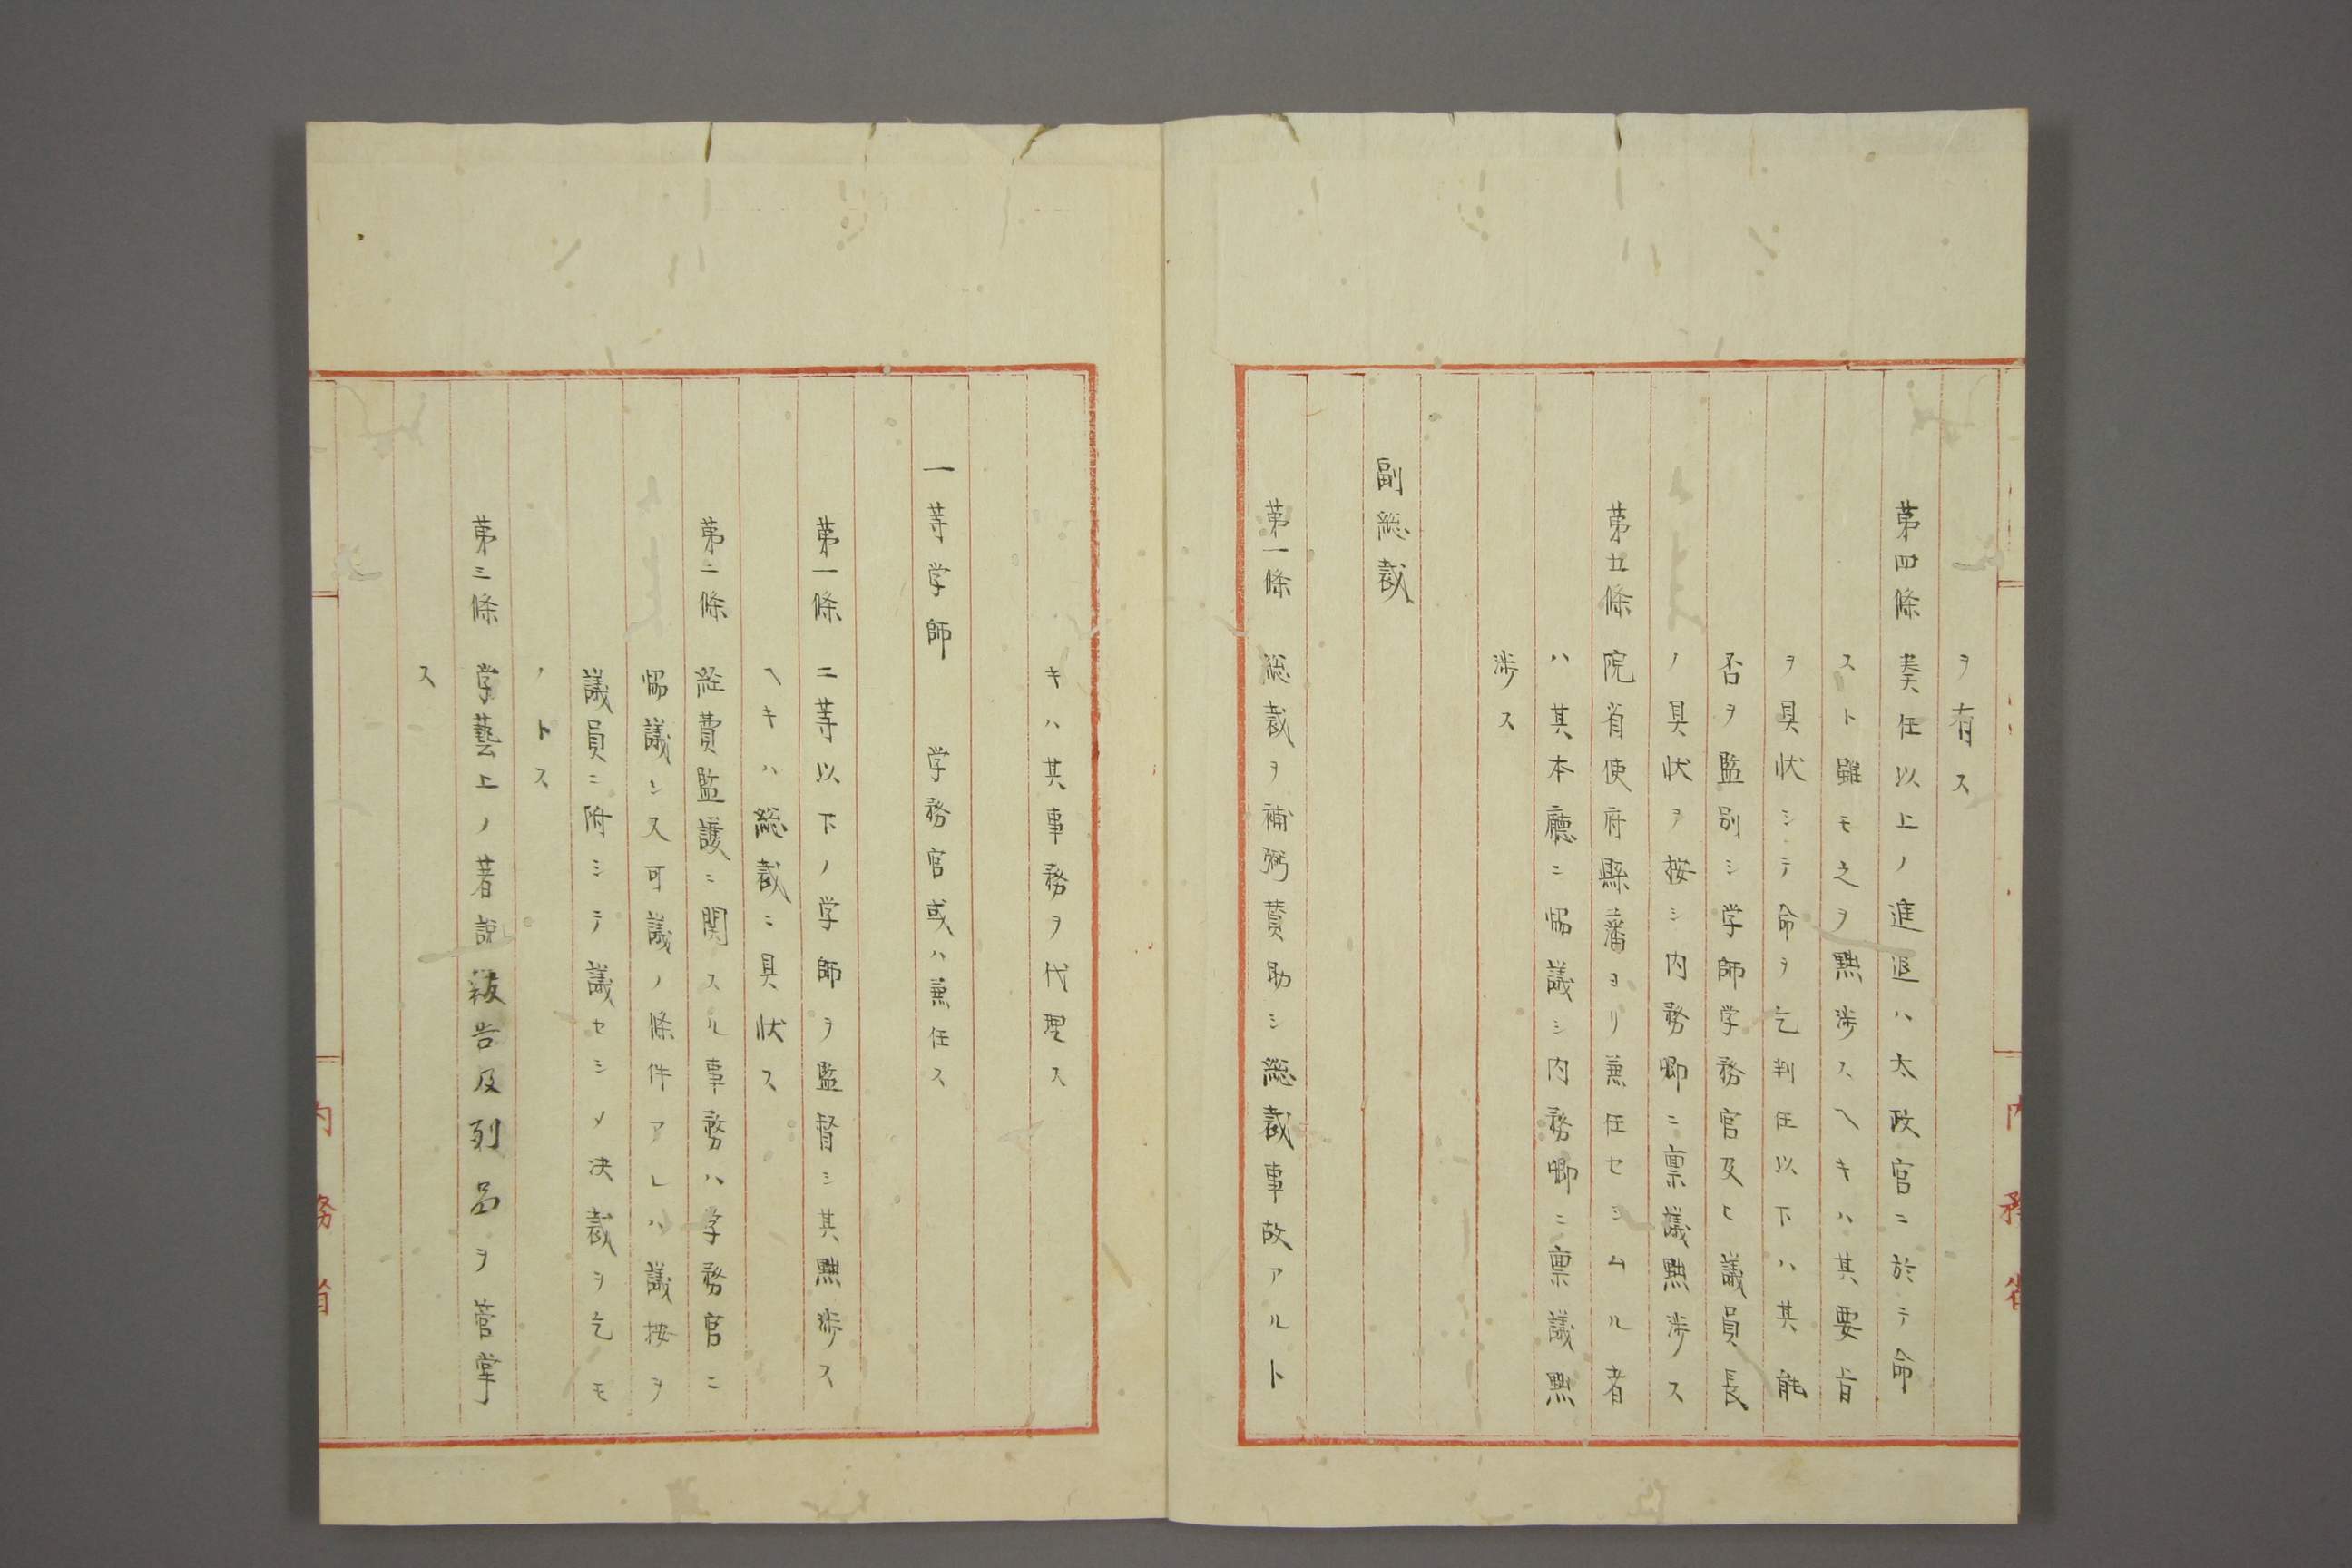 ヲ有ス
第四條 奏任以上ノ進退ハ太政官ニ於テ命
スト雖モ之ヲ黜陟スヘキハ其要旨
ヲ具状シテ命ヲ乞判任以下ハ其能
否ヲ監別シ学師学務官及ヒ議員長
ノ具状ヲ按シ内務卿ニ禀議黜陟ス
第五條 院省使府縣藩ヨリ兼任セシムル者
ハ其本廳ニ協議シ内務卿ニ禀議黜
陟ス
副総裁
第一條 総裁ヲ補弼賛助シ総裁事故アルト
内務省
キハ其事務ヲ代理ス
一等学師 学務官或ハ兼任ス
第一條 二等以下ノ学師ヲ監督シ其黜陟ス
ヘキハ総裁ニ具状ス
第二條 経費監護ニ関スル事務ハ学務官ニ
協議シ又可議ノ條件アレハ議按ヲ
議員ニ附シテ議セシメ決裁ヲ乞モ
ノトス
第三條 学藝上ノ著説報告及列品ヲ菅掌
ス
内務省